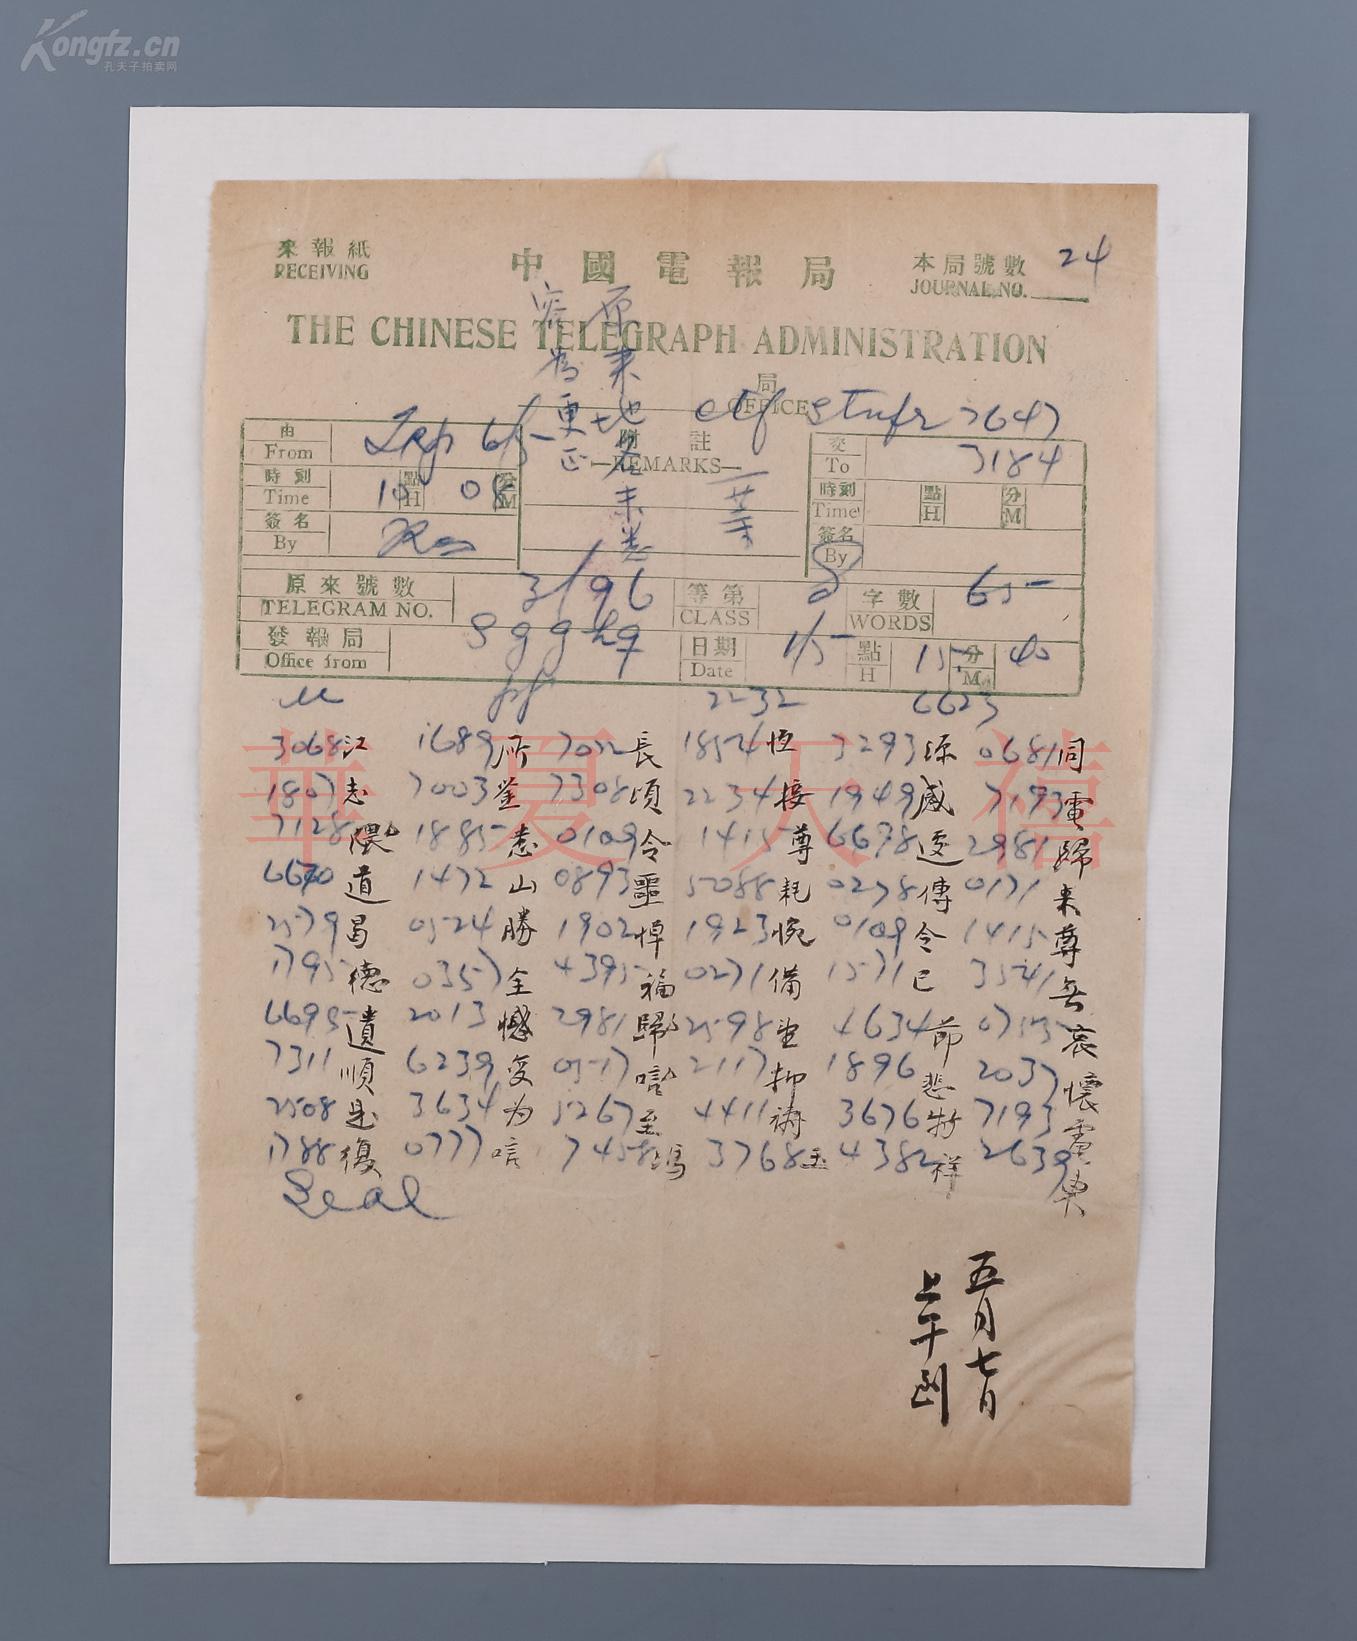 Kongfz.cn
孔夫子拍卖网
來報紙
RECEIVING
中國電報局
本局號數 24
JOURNAL NO.
THE CHINESE TELEGRAPH ADMINISTRATION
局
OFFICE
7647
由
From
附註
REMARKS
交
To
3184
時刻
Time
10 點 H
分 M
時刻
Time
點 H
分 M
簽名
By
簽名
By
原來號數
TELEGRAM NO.
3/96
等第
CLASS
字數
WORDS
65
發報局
Office from
日期
Date
1/5
點
H
15
分
M
40
2232 6623
3068江 1689所 7022長 1854恆 3293源 0681同
1807志 7003鉴 7308項 2234接 1949感 7193電
7128隈 1885悉 0109令 1415尊 6678 2981歸
6670道 1472山 0893噩 5088耗 0278傳 0171来
2579昌 0524勝 1902悼 1923惋 0109令 1415尊
1795德 0357全 4395福 0271備 1571已 3541
6695遺 2013憾 2981歸 2598 4634節 0755哀
7311順 6239 0517 2117抑 1896悲 2037懷
2508是 3634为 5267至 4411 3676特 7193電
1788復 0777唁 7458鴻 3768玉 4382祥 2639
Seal
華夏天禧
五月七日
上午到